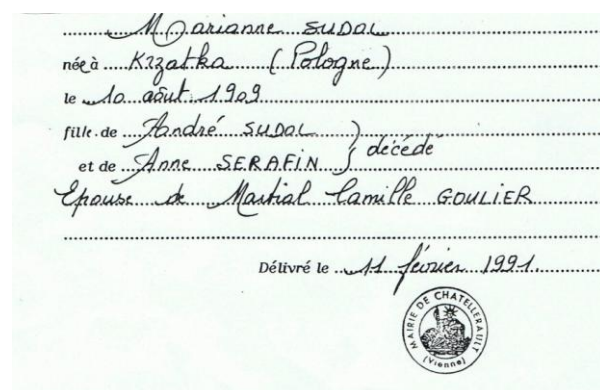 Marianne SUDOL
née à Krzatka (Pologne)
le 10 août 1909
fille de André SUDOL
et de Anne SERAFIN } décédé
Epouse de Martial Camille GOULIER
Délivré le 11 février 1991
MAIRIE DE CHATELLERAULT
(Vienne)